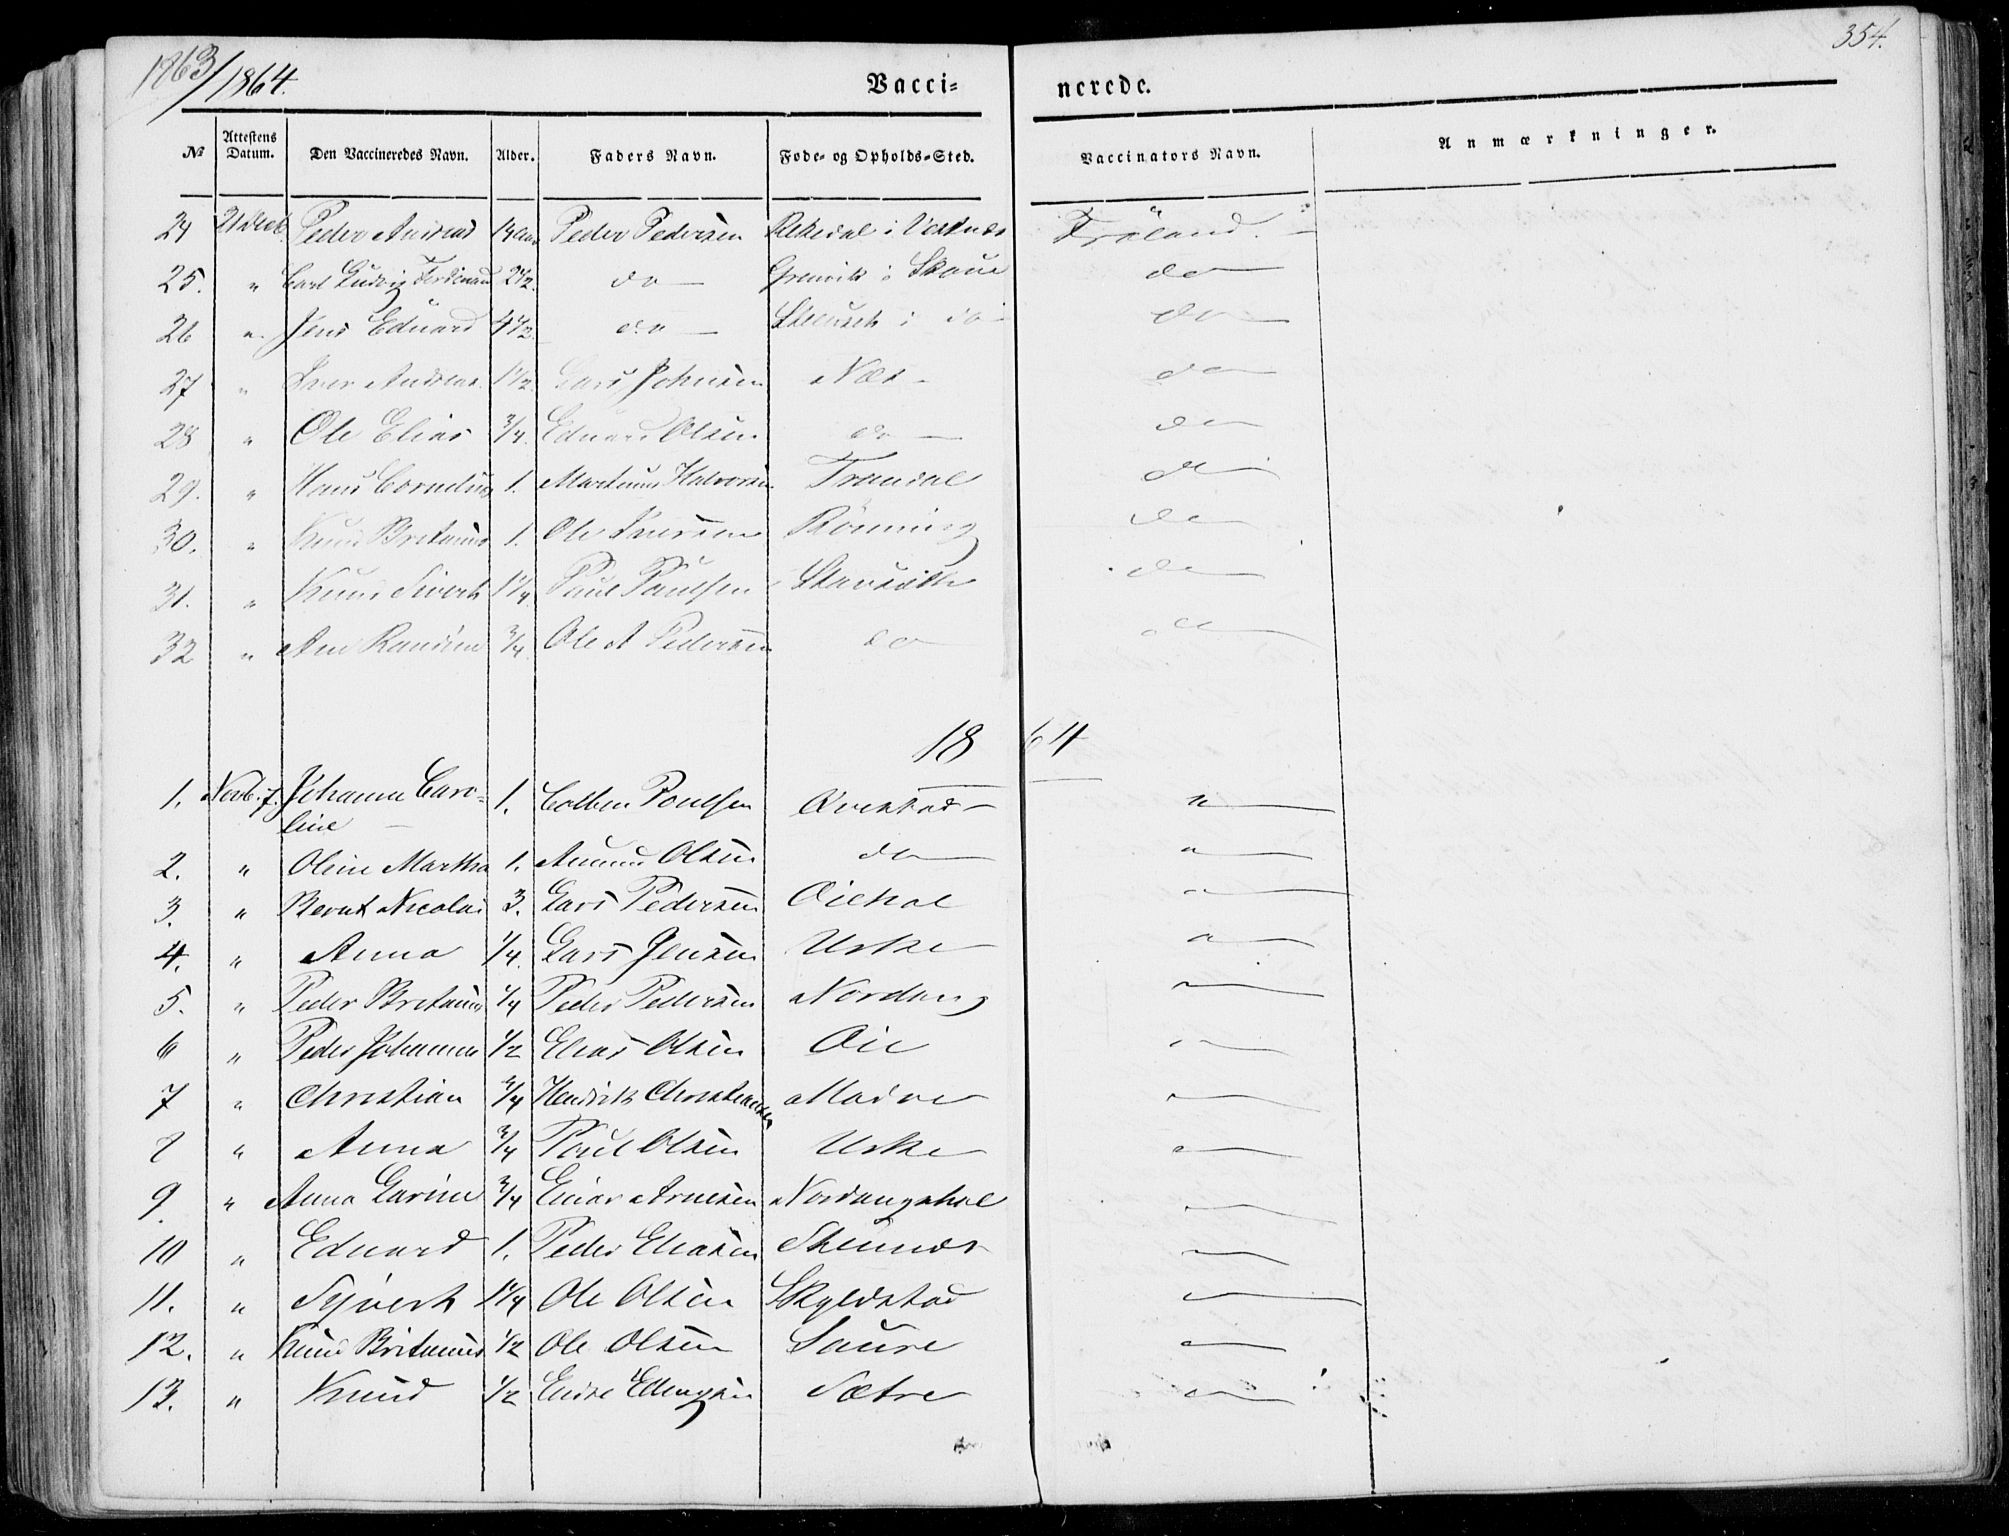 1863/1864.
354.
Vacci= nerede.
№ Attestens Datum. Den Vaccineredes Navn. Alder. Faders Navn. Føde- og Opholds-Sted. Vaccinators Navn. Anmærkninger.
24 21 Decb. Peder Andreas Peder Pedersen i Vestnæs Frøland.
25. " Carl Ludvig Ferdinand 2½. do Grønvik i do
26 " Jens Eduard 4½. do i do do
27 " Iver Andreas 1½ Lars Johnsen Næs do
28 " Ole Elias ¾. Eduard Olsen do do
29. " Hans Cornelius 1. Martinus Halvorsen Trandal do
30. " Knud Britanus 1. Ole Iversen Rønning do
31. " Knud Sivert 1¼ Paul Paulsen Stavsæth do
32 " Ane Randine ¾. Ole A Pedersen do do
1864
1. Novb. 7. Johanne Caro=
line 1. Colben Poulsen Qvistad "
2. " Oline Martha 1. Amund Olsen do "
3. " Bernt Nicolai 3. Lars Pedersen Øiehol "
4. " Anna ¼. Lars Jensen Urke "
5. " Peder Britanus ¼ Peder Pedersen Nordang "
6 " Peder Johannes ½ Elias Olsen Øie "
7 " Christian ¾ Hendrik Christiansen Madve "
8 " Anna ¾ Poul Olsen Urke "
9. " Anna Larine ¾ Einar Arnesen Nordangshol "
10 " Eduard 1. Peder Eliasen Skinnes "
11. " Syvert 1¼ Ole Olsen Skyldstad "
12. " Knud Britanus ½ Ole Olsen Saure "
13. " Knud ½ Endre Ellingsen Sætre "